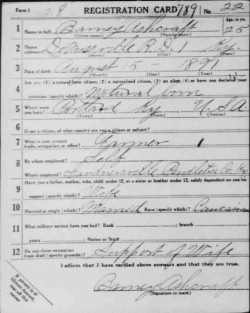 Form 1 REGISTRATION CARD No. 22
1 Name in full Barney Ashcraft Age, in yrs. 25
2 Home address R.D. 1 Ky.
3 Date of birth August 5 1891
4 Natural born
5 Where were you born? Ky U S A
6 If not a citizen, of what country are you a citizen or subject?
7 What is your present trade, occupation, or office? Farmer 1
8 By whom employed? Self
Where employed? Pendleton Co. Ky
9 Have you a father, mother, wife, child under 12, or a sister or brother under 12, solely dependent on you for support (specify which)? Wife
10 Married or single (which)? Married Race (specify which)? Caucasian
11 What military service have you had? Rank branch
years Nation or State
12 Do you claim exemption from draft (specify grounds)? Support of Wife
I affirm that I have verified above answers and that they are true.
Barney Ashcraft
(Signature or mark)